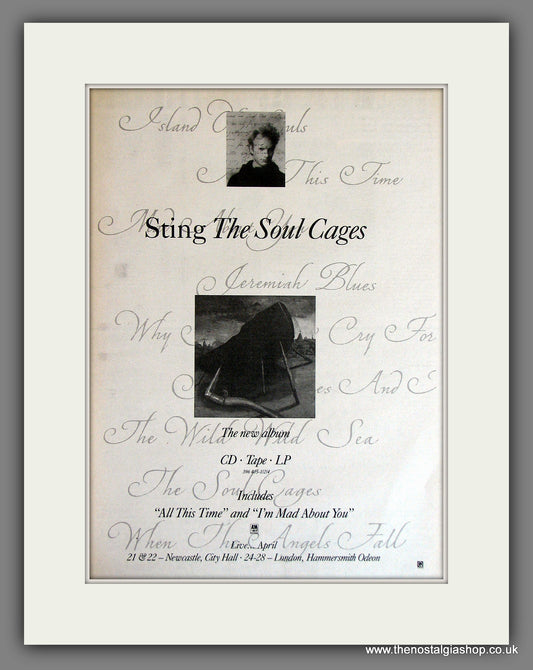 Island Of Souls
All This Time
Mad About You
Sting The Soul Cages
Jeremiah Blues
Why Cry For
And
The Wild Wild Sea
The new album
CD · Tape · LP
The Soul Cages
Includes
"All This Time" and "I'm Mad About You"
When The Angels Fall
Live... April
21 & 22 – Newcastle, City Hall · 24-28 – London, Hammersmith Odeon
www.thenostalgiashop.co.uk